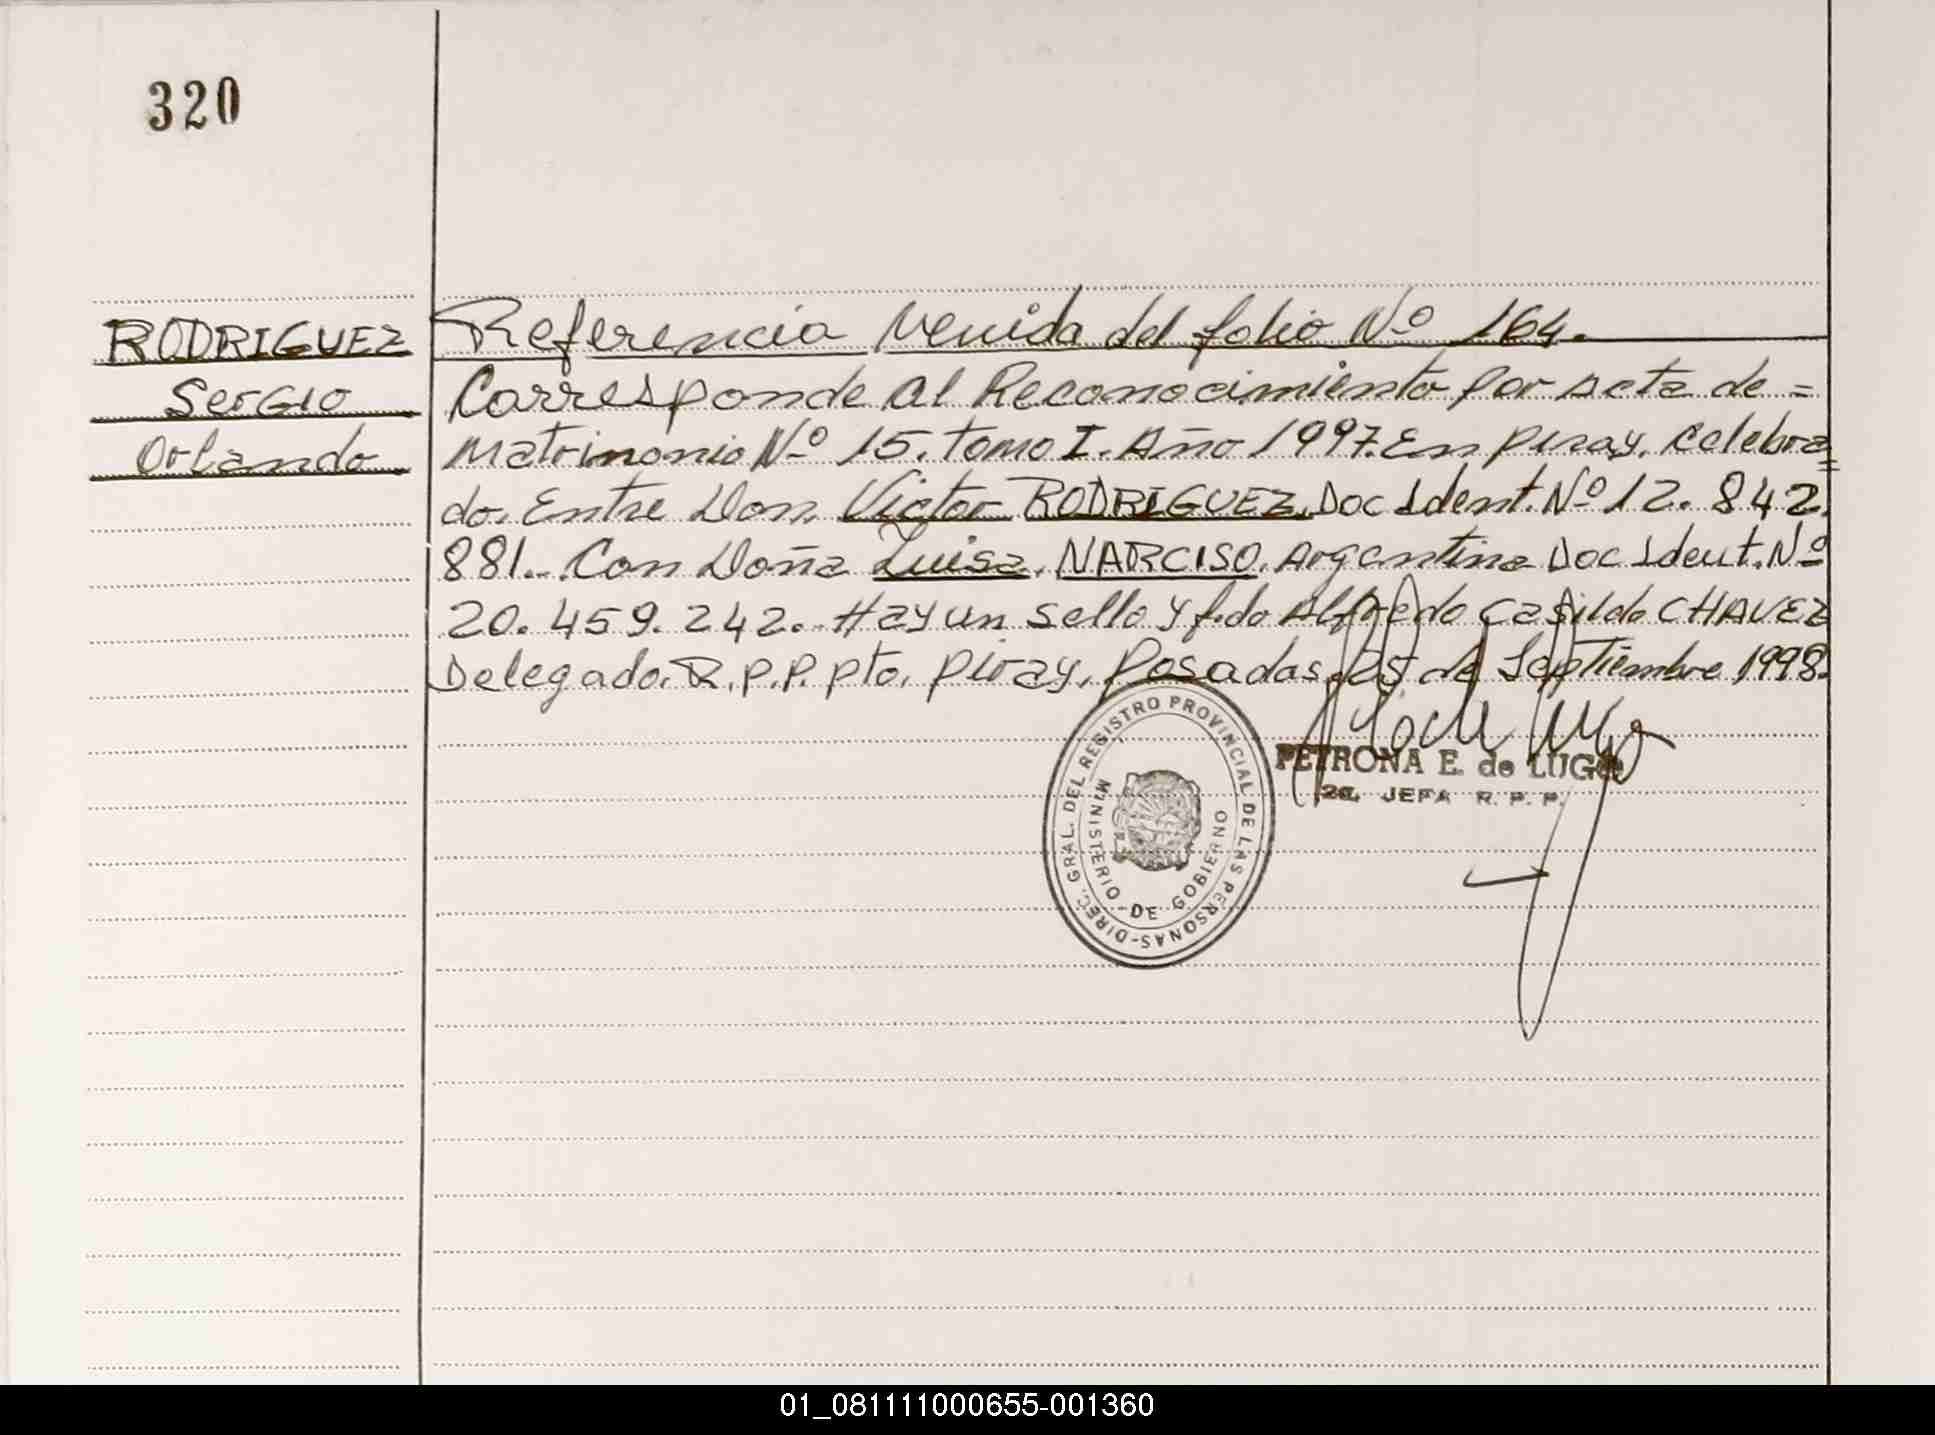 320
RODRIGUEZ
Sergio
Orlando
Referencia Venida del folio Nº 164.
Corresponde al Reconocimiento por acta de =
Matrimonio Nº 15. tomo I. Año 1997. En Piray. Celebra=
do. Entre Don. Victor RODRIGUEZ. Doc Ident. Nº 12. 842.
881.. Con Doña Luisa. NARCISO. Argentina Doc Ident. Nº
20. 459. 242. Hay un sello y f.do Alfredo Casildo CHAVEZ
Delegado. R. P. P. Pto. Piray. Posadas. 25 de Septiembre 1998.
PETRONA E. de LUGO
2a. JEFA R. P. P.
DIREC. GRAL. DEL REGISTRO PROVINCIAL DE LAS PERSONAS-
MINISTERIO - DE GOBIERNO
01_081111000655-001360